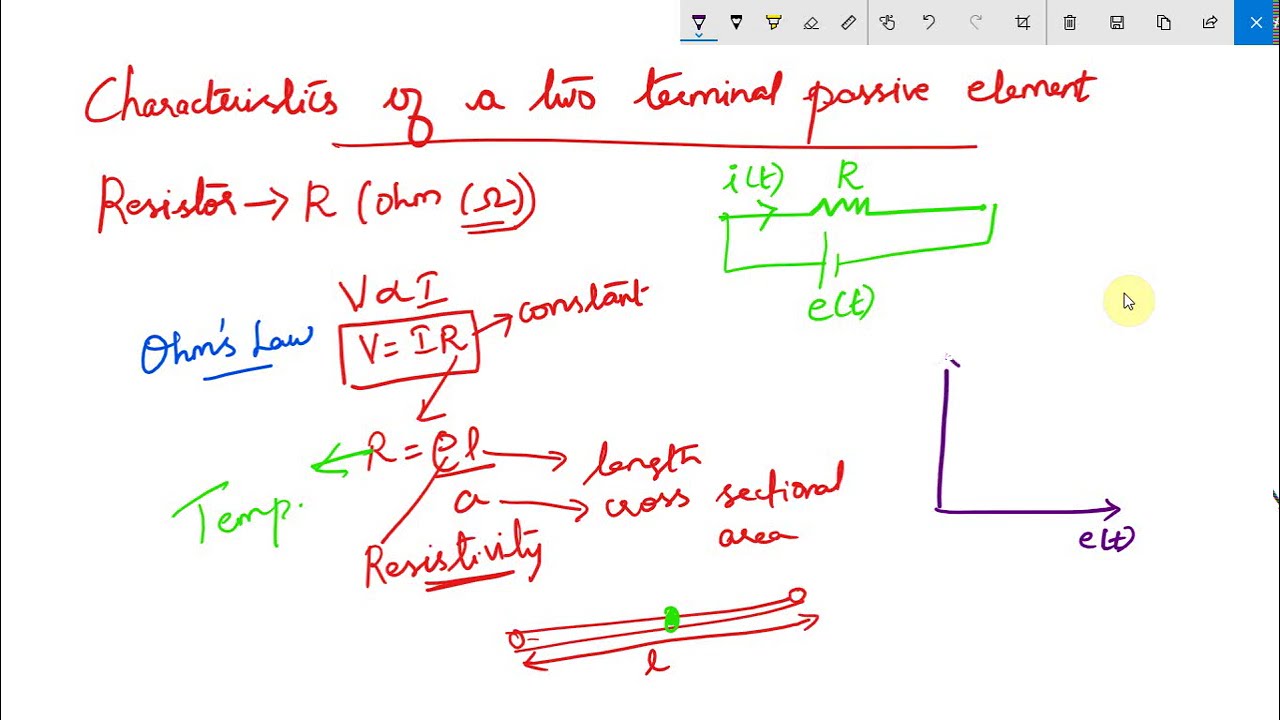 Characteristics of a two terminal passive element
Resistor → R (ohm (Ω))
i(t) R
e(t)
V ∝ I
Ohm's Law
V = IR → constant
R = ρl → length
a → cross sectional
area
Temp.
Resistivity
l
e(t)